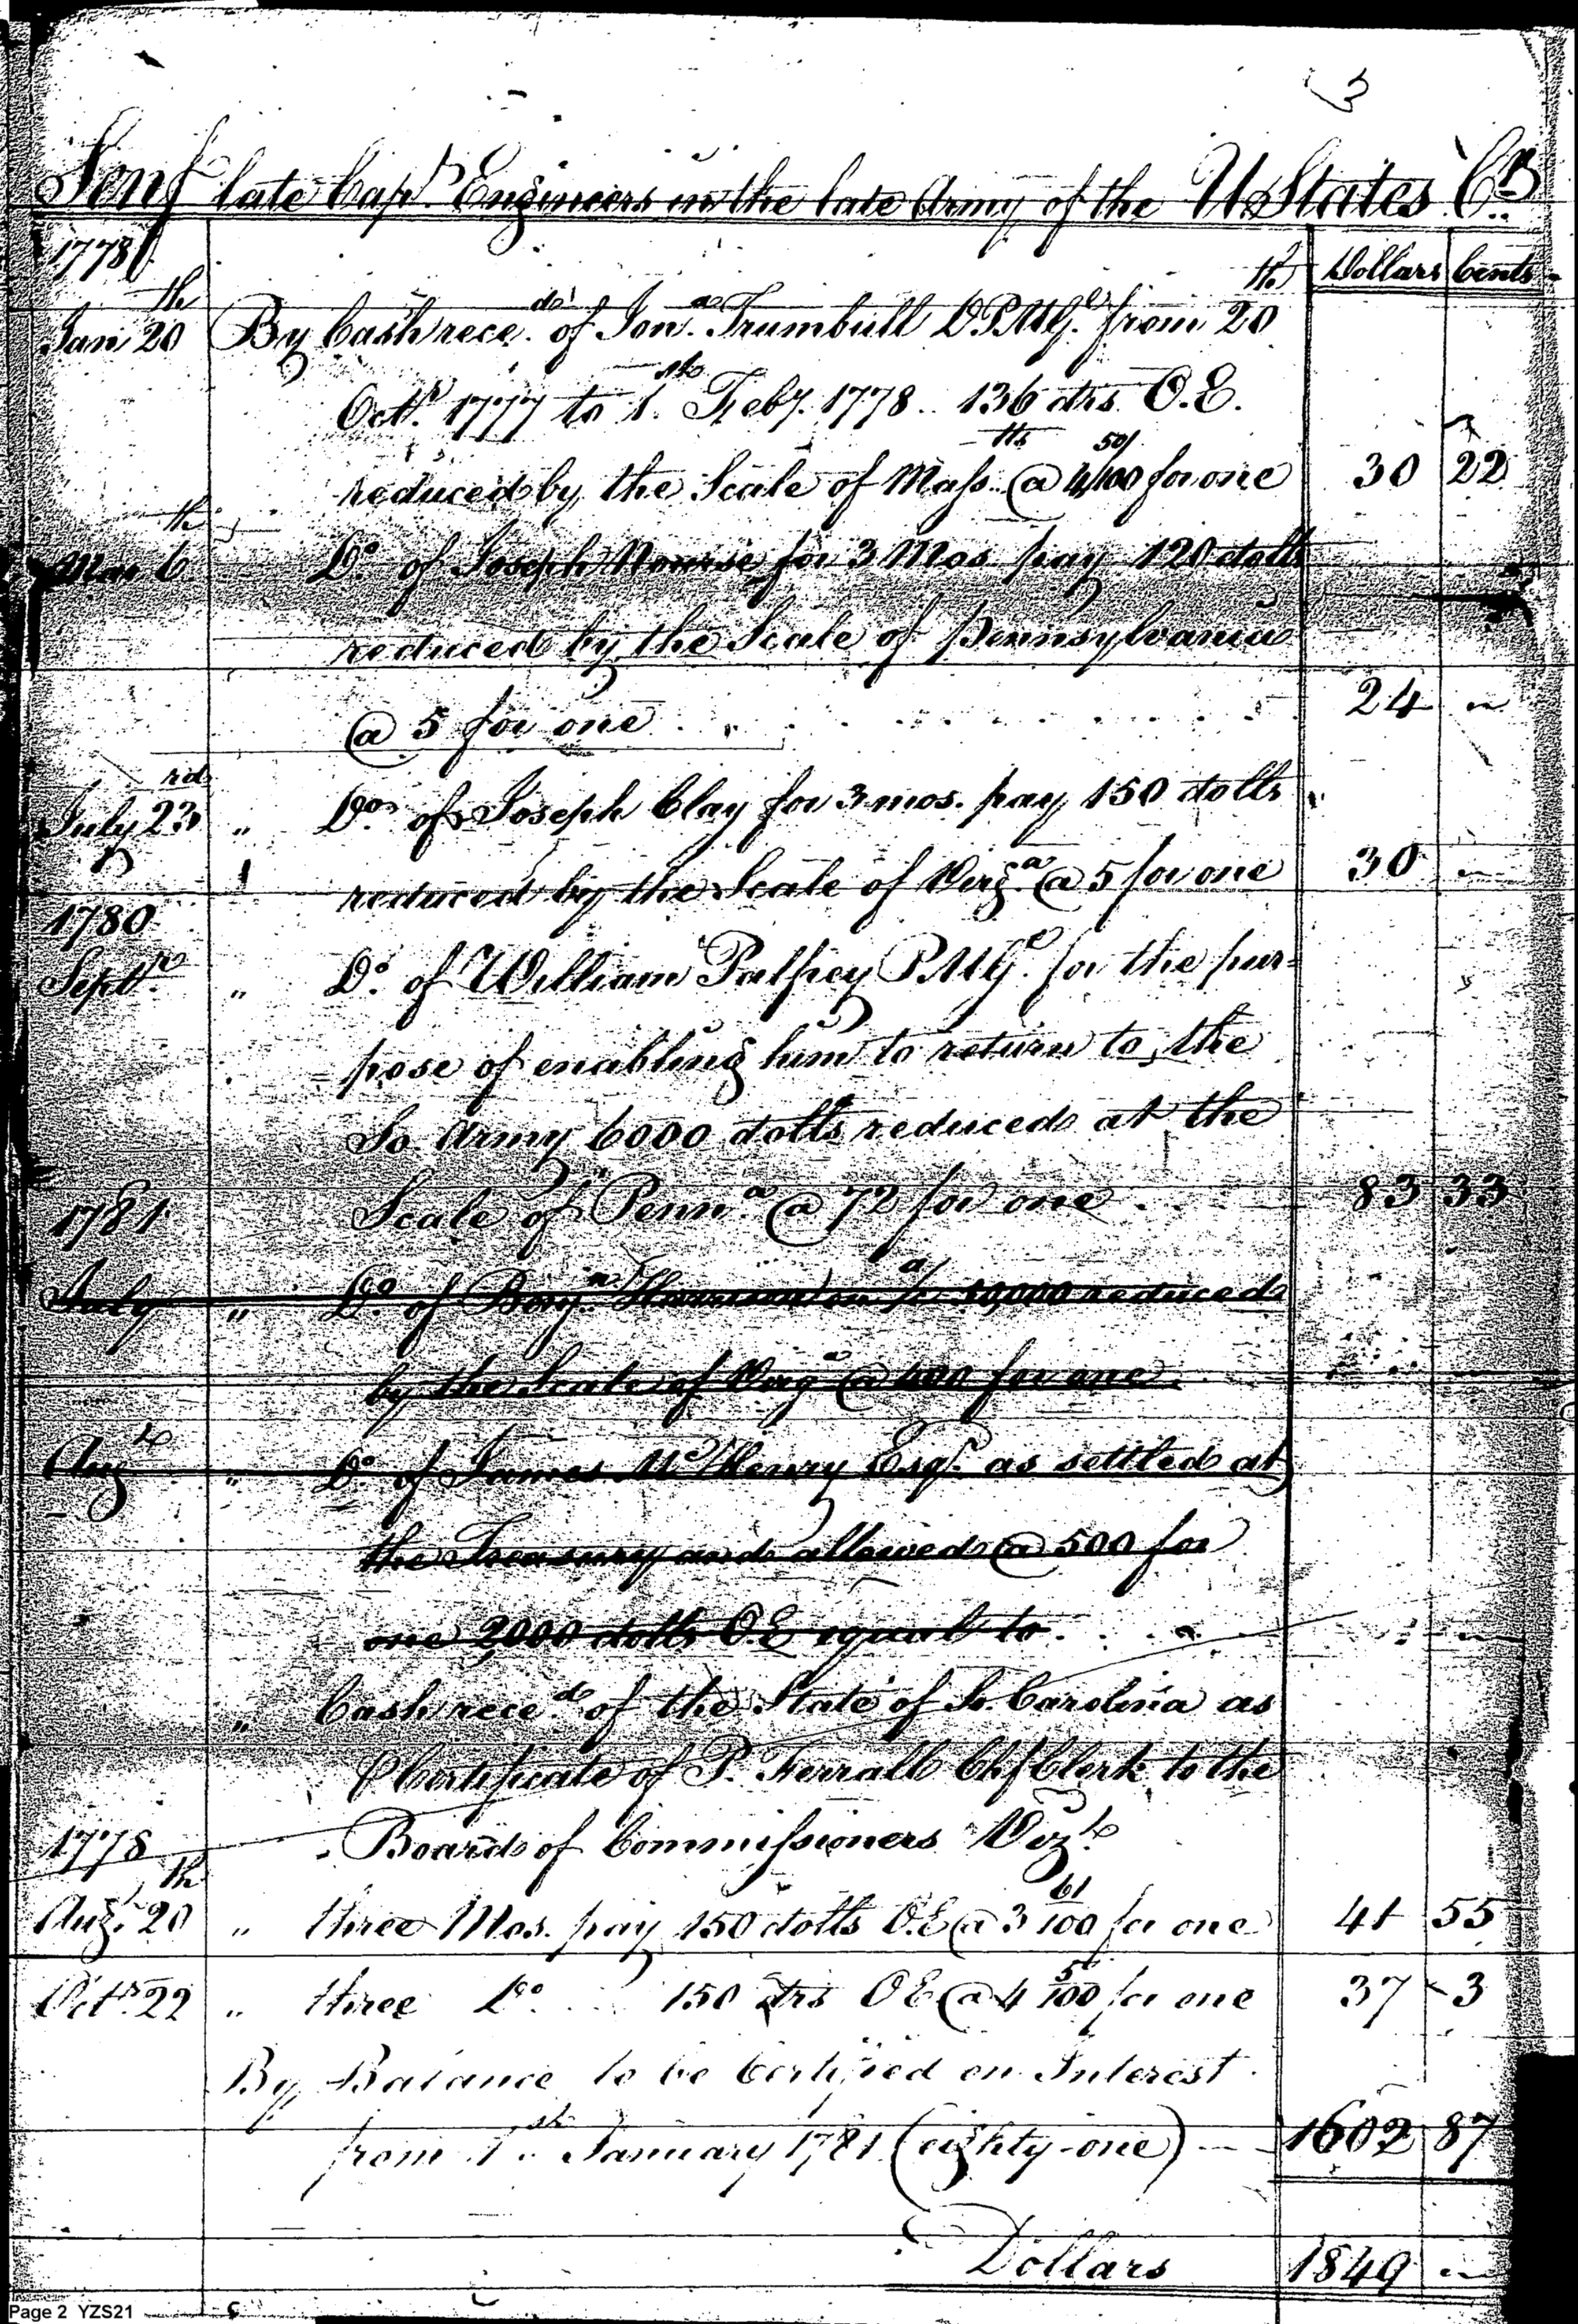 3
Senf late Capt. Engineers in the late Army of the U States Cr.
1778
Dollars Cents
Jan 20th By Cash reced. of Jona. Trumbull D.P.M.Gl. from 20th
Octr. 1777 to 1st. Feby. 1778 .. 136 drs. O.E.
reduced by the Scale of Mass. @ 4 50/100ths for one 30 22
Mar 6th Do. of Joseph Nourse for 3 Mos. pay 120 dolls
reduced by the Scale of Pennsylvania
@ 5 for one 24 "
July 23rd " Do. of Joseph Clay for 3 mos. pay 150 dolls
reduced by the Scale of Virga. @ 5 for one 30 "
1780
Septr. " Do. of William Palfrey P.M.Gl. for the pur=
pose of enabling him to return to the
So. Army 6000 dolls reduced at the
1781 Scale of Penna. @ 72 for one 83 33
July " Do. of Benjn. Harrison on a/c 10,000 reduced
by the Scale of Virga @ 400 for one
Augt " Do. of James McHenry Esqr. as settled at
the Treasury and allowed @ 500 for
one 2000 dolls O.E equal to
" Cash reced. of the State of So. Carolina as
Certificate of P. Ferrall Chf Clerk to the
1778 Board of Commissioners Vizt.
Augt. 20th " three Mos. pay 150 dolls O.E @ 3 61/100 for one 41 55
Octr. 22 " three Do. 150 drs O E @ 4 5/100 for one 37 3
By Balance to be Certified on Interest
from 1st. January 1781 (eighty-one) 1602 87
Dollars 1849 "
Page 2 YZS21